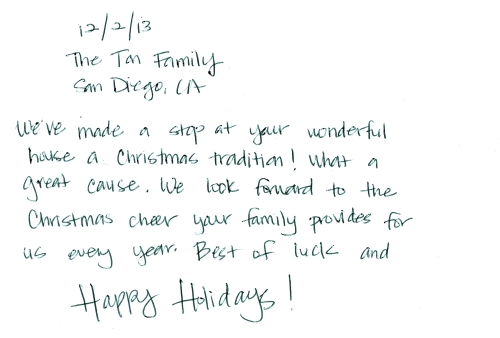 12/2/13
The Tan Family
San Diego, CA
We've made a stop at your wonderful
house a Christmas tradition! What a
great cause. We look forward to the
Christmas cheer your family provides for
us every year. Best of luck and
Happy Holidays!